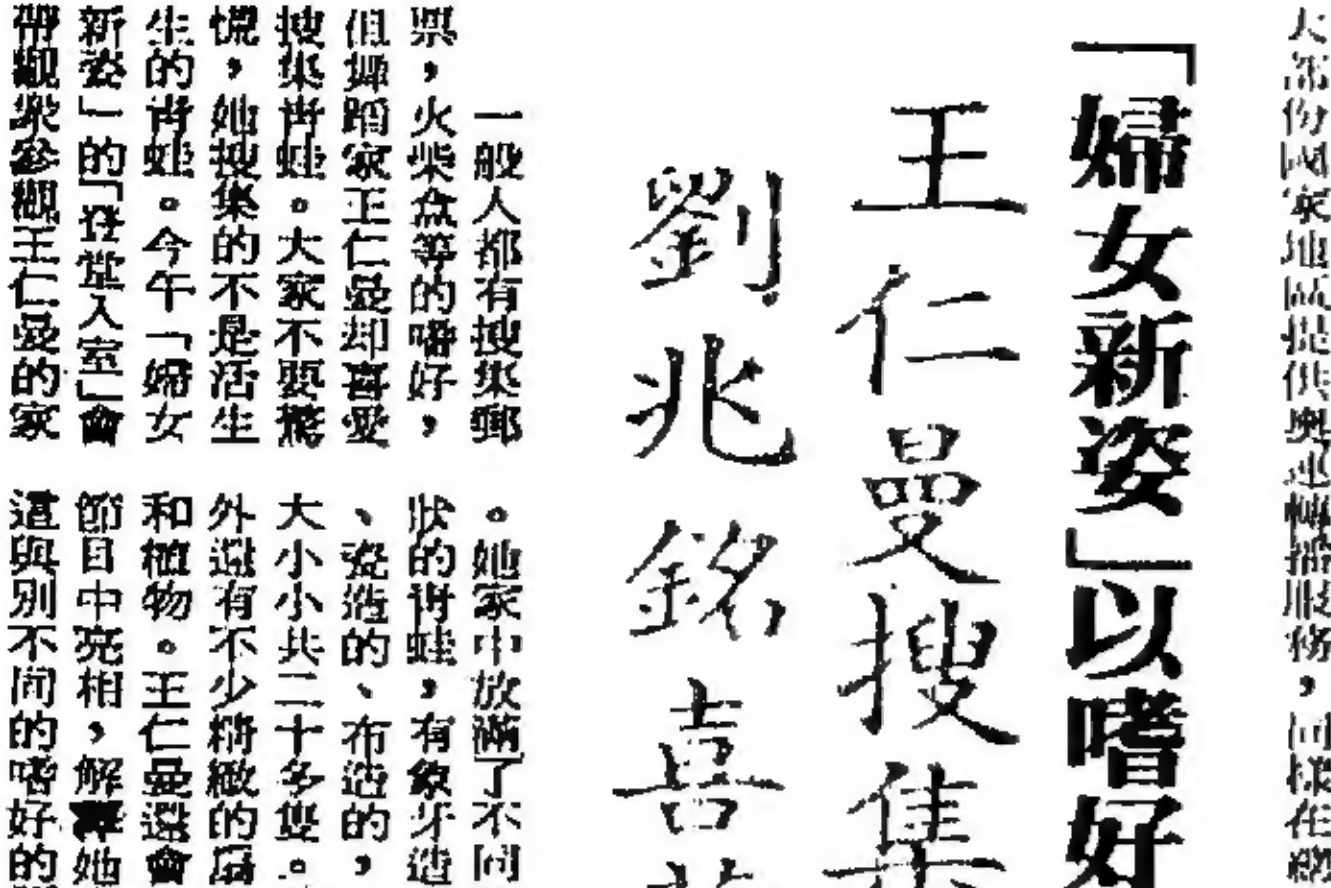 大部份國家地區提供奧運轉播服務，同樣在
「婦女新姿」以嗜好
王仁曼搜集
劉兆銘喜
一般人都有搜集郵
票，火柴盒等的嗜好，
但舞蹈家王仁曼却喜愛
搜集青蛙。大家不要驚
慌，她搜集的不是活生
生的青蛙。今午「婦女
新姿」的「登堂入室」會
帶觀眾參觀王仁曼的家
。她家中放滿了不同
狀的青蛙，有象牙造
、瓷造的、布造的，
大小小共二十多隻。
外還有不少精緻的扇
和植物。王仁曼還會
節目中亮相，解釋她
這與別不同的嗜好的